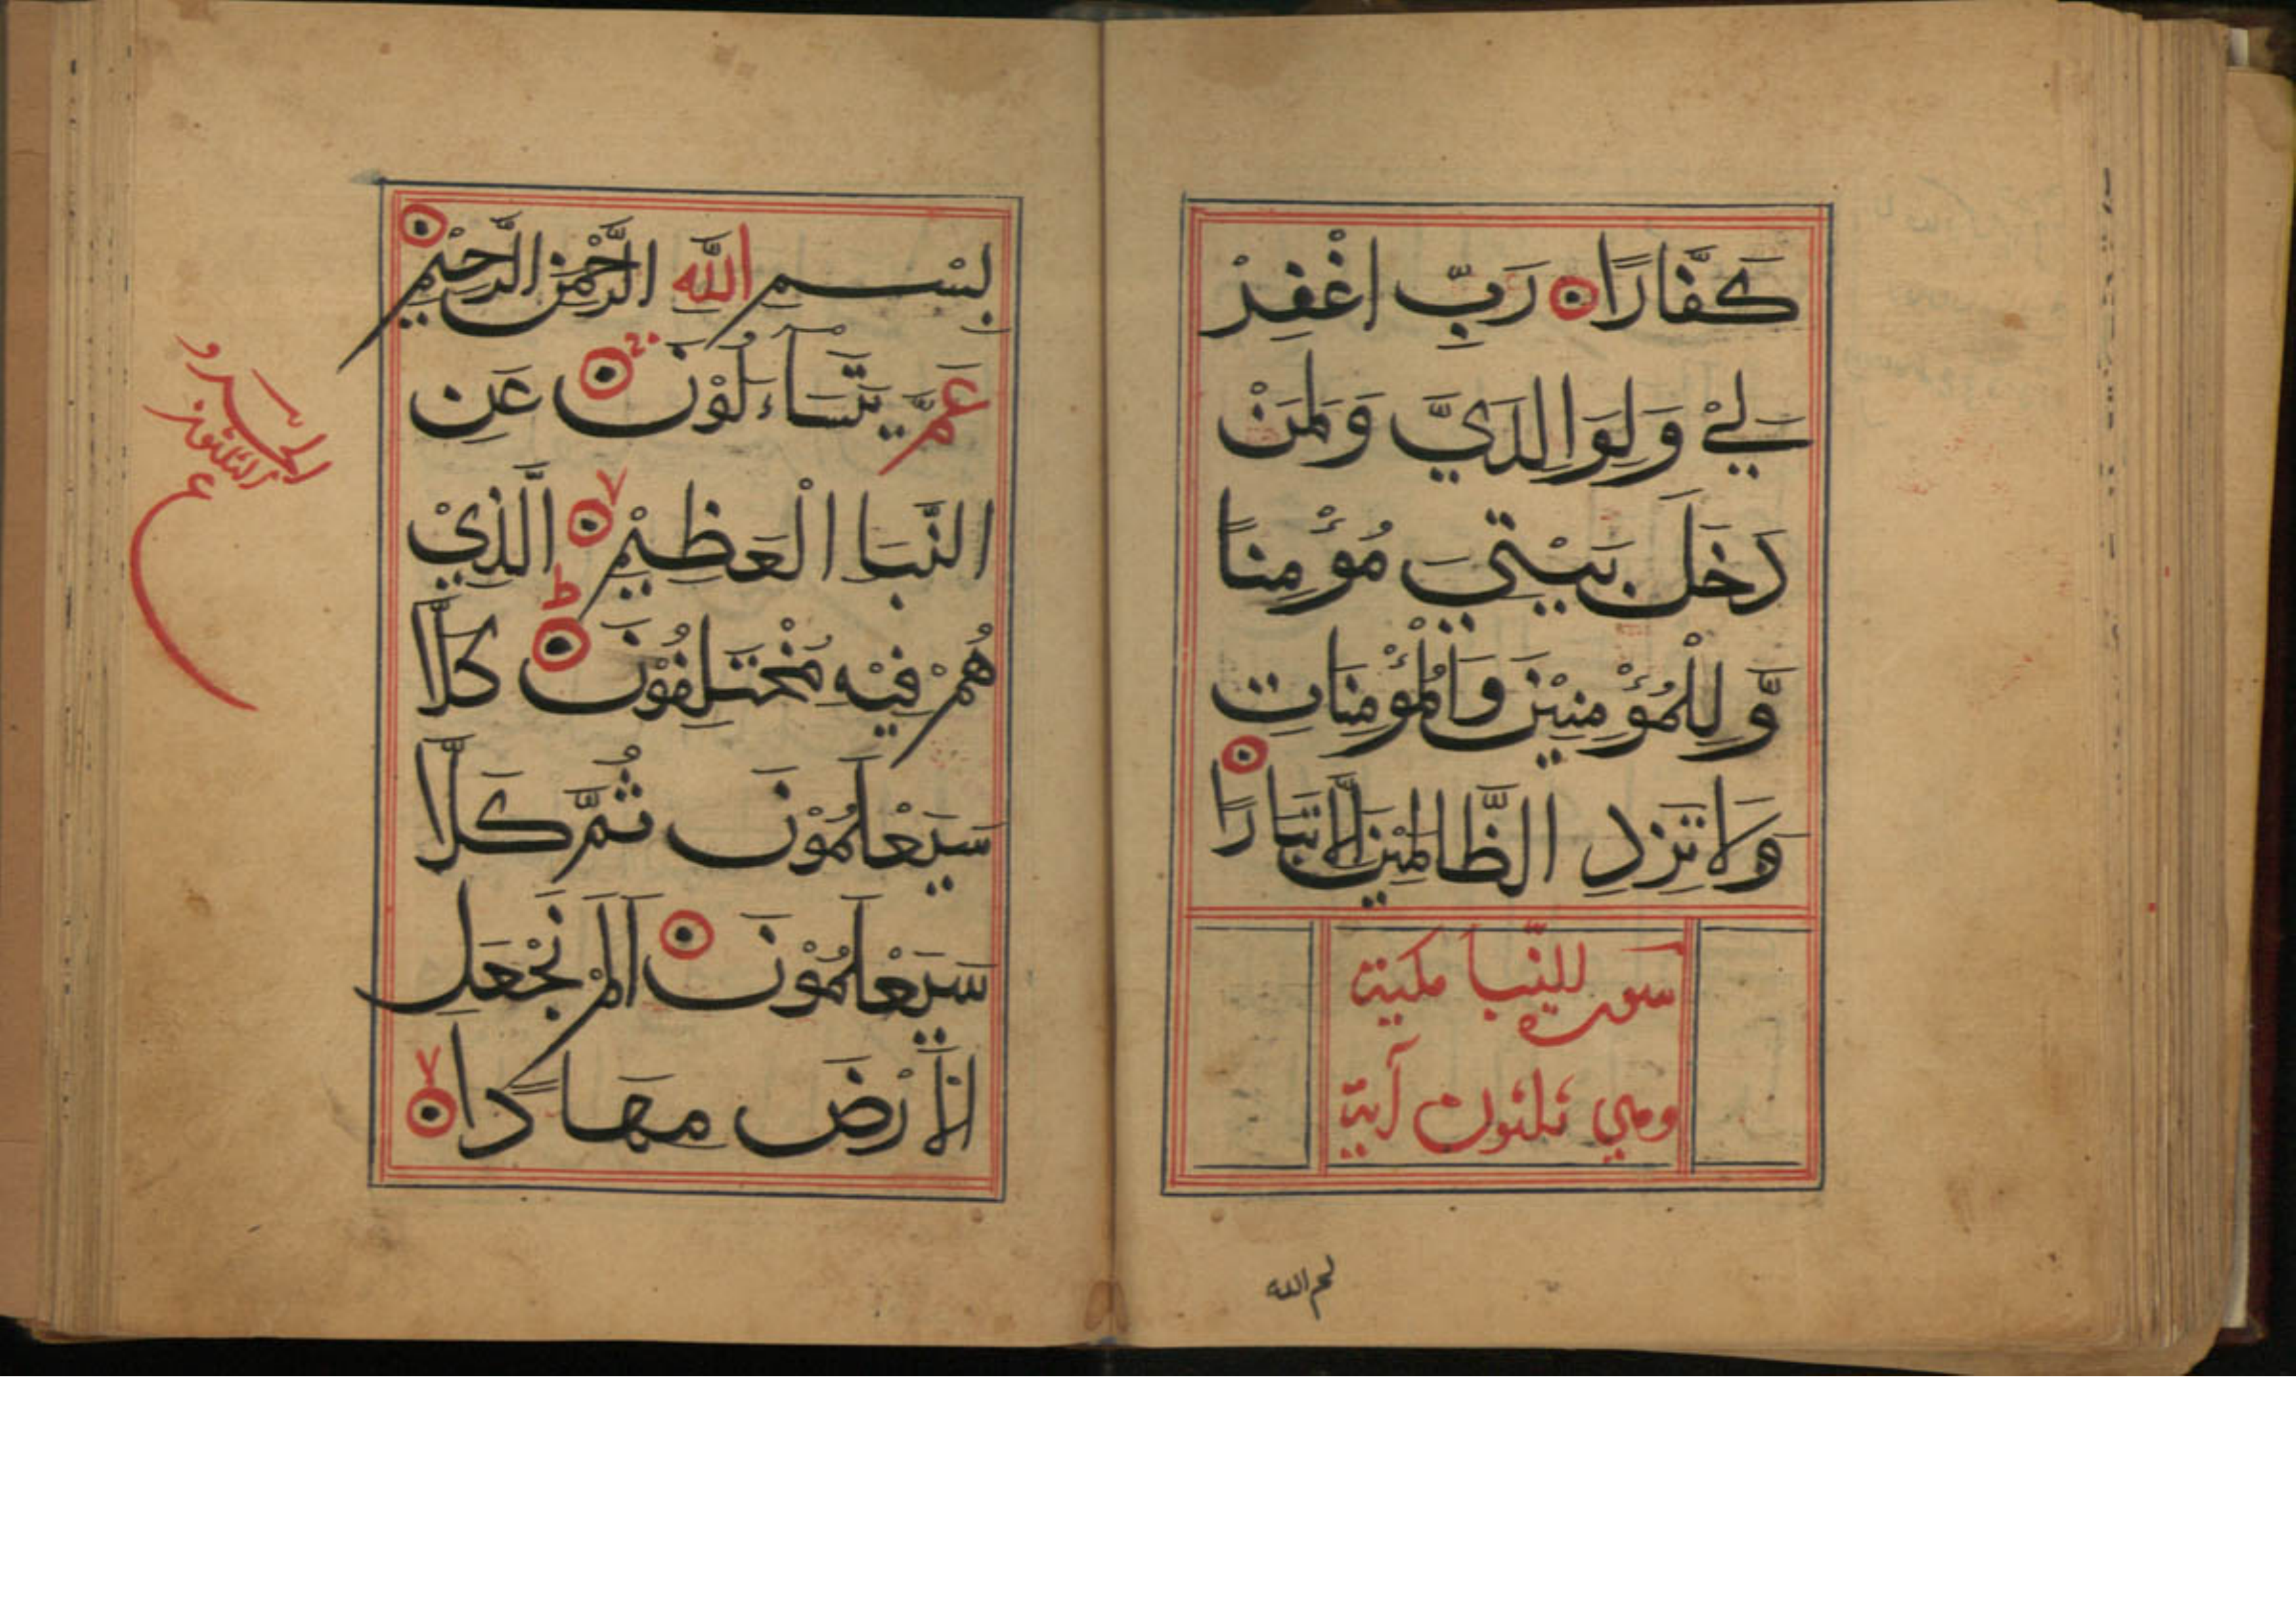 كَفَّارًا رَبِّ اغْفِرْ
لِيْ وَلِوَالِدَيَّ وَلِمَنْ
دَخَلَ بَيْتِيَ مُؤْمِنًا
وَّ لِلْمُؤْمِنِيْنَ وَالْمُؤْمِنَاتِ
وَلَا تَزِدِ الظَّالِمِيْنَ اِلَّا تَبَارًا
سورة النَّبا مكية
وهي ثلثون آية
بِسْمِ اللَّهِ الرَّحْمٰنِ الرَّحِيْمِ
عَمَّ يَتَسَاءَلُوْنَ عَنِ
النَّبَاِ الْعَظِيْمِ الَّذِيْ
هُمْ فِيْهِ مُخْتَلِفُوْنَ كَلَّا
سَيَعْلَمُوْنَ ثُمَّ كَلَّا
سَيَعْلَمُوْنَ اَلَمْ نَجْعَلِ
الْاَرْضَ مِهَادًا
الجزو
الثلثون
ع